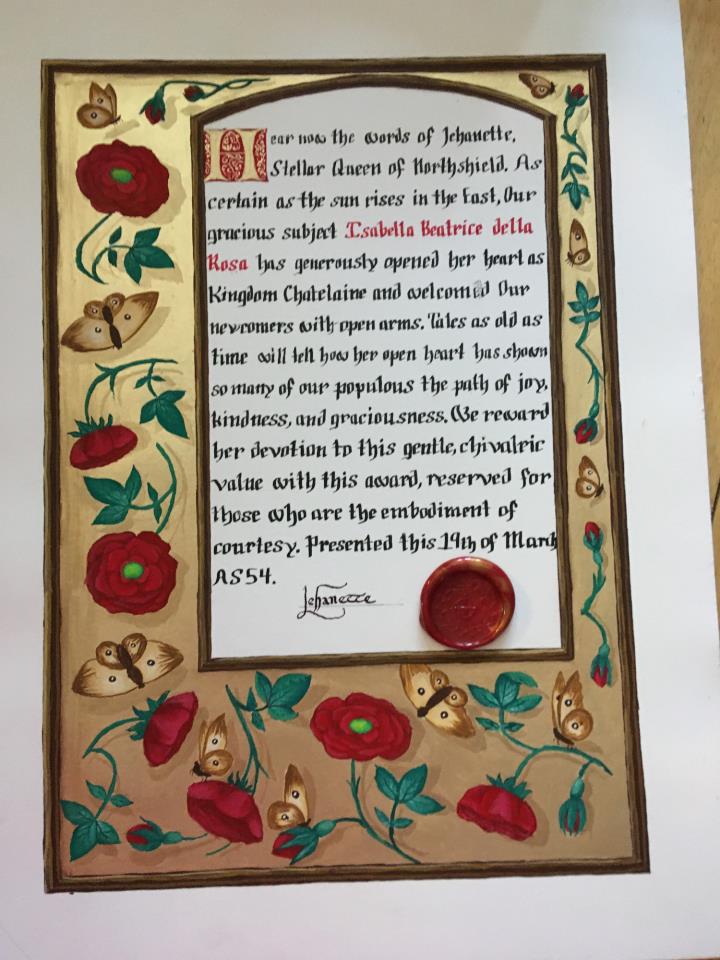 Hear now the words of Jehanette,
Stellar Queen of Northshield. As
certain as the sun rises in the East, Our
gracious subject Isabella Beatrice della
Rosa has generously opened her heart as
Kingdom Chatelaine and welcomed Our
newcomers with open arms. Tales as old as
time will tell how her open heart has shown
so many of our populous the path of joy,
kindness, and graciousness. We reward
her devotion to this gentle, chivalric
value with this award, reserved for
those who are the embodiment of
courtesy. Presented this 19th of March
AS54.
Jehanette